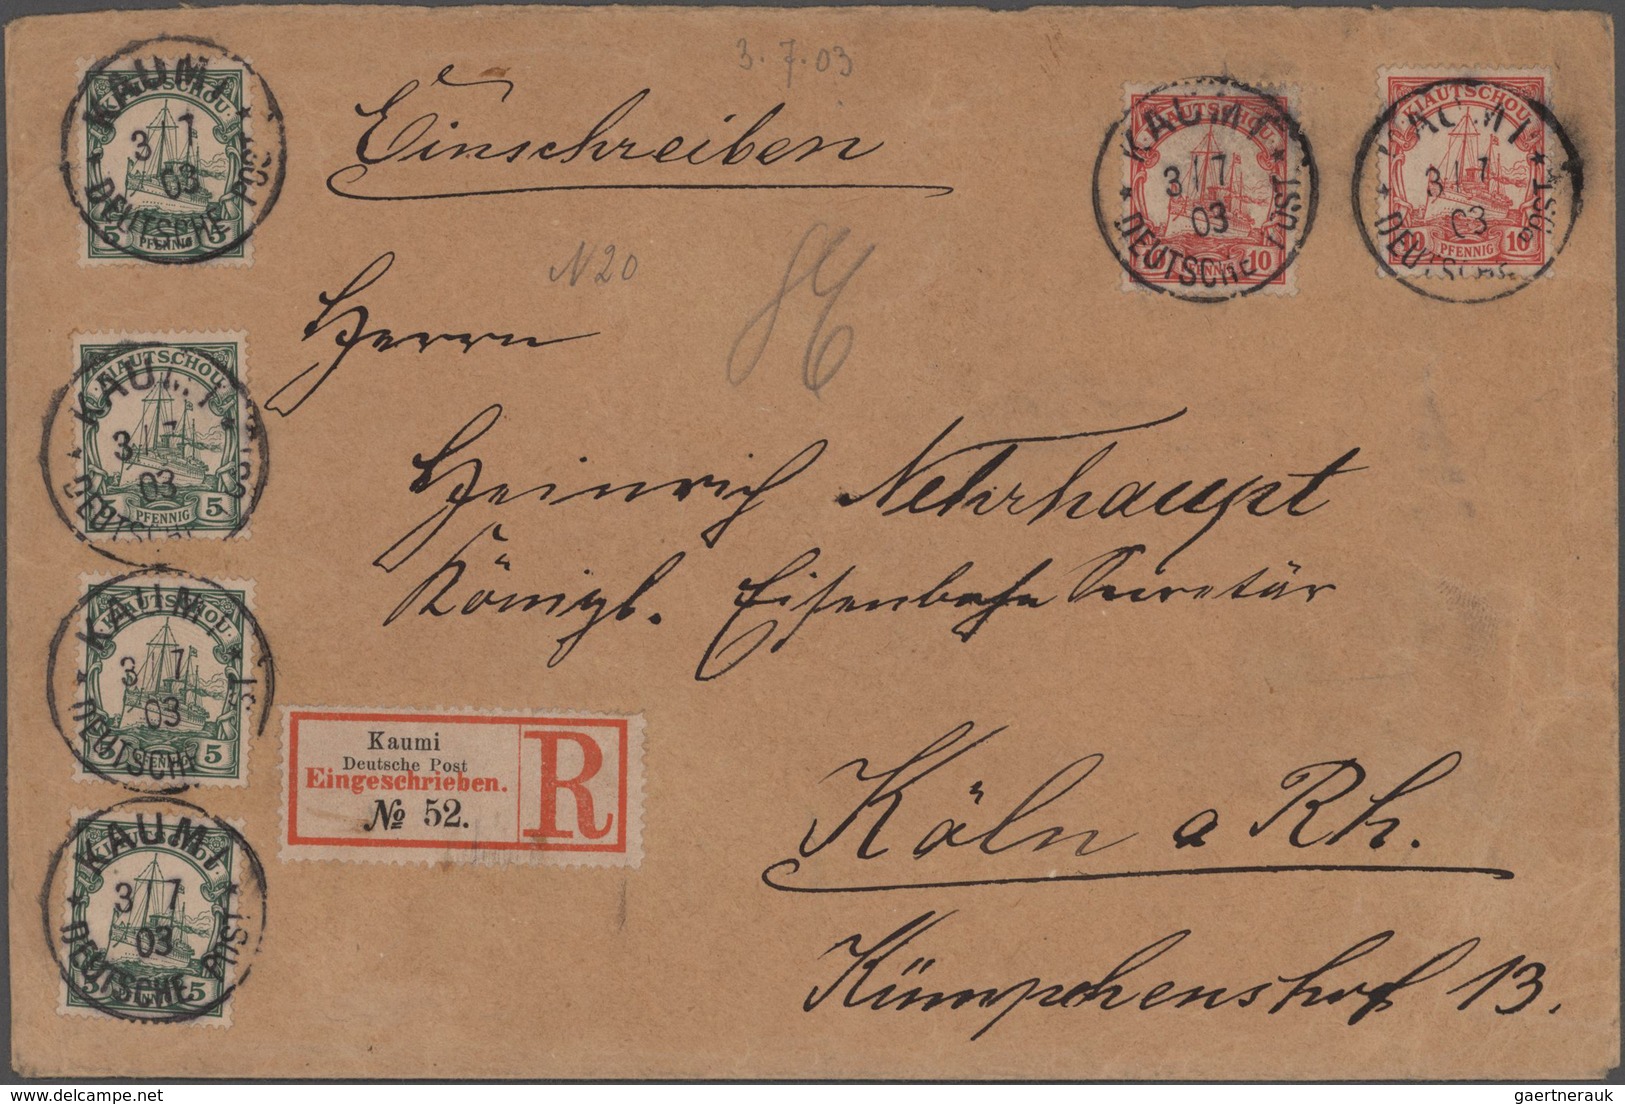 3.7.03
Einschreiben
N 20
Herrn
Heinrich Nehrhaupt
Königl. Eisenbahn Secretär
Köln a Rh.
Kümpchenshof 13.
Kaumi
Deutsche Post
Eingeschrieben.
№ 52.
R
KIAUTSCHOU
5 PFENNIG 5
KAUMI
3/7
03
DEUTSCHE POST
KIAUTSCHOU
5 PFENNIG 5
KAUMI
3/7
03
DEUTSCHE POST
KIAUTSCHOU
5 PFENNIG 5
KAUMI
3 7
03
DEUTSCHE POST
KIAUTSCHOU
5 PFENNIG 5
KAUMI
3/7
03
DEUTSCHE POST
KIAUTSCHOU
10 PFENNIG 10
KAUMI
3/7
03
DEUTSCHE POST
KIAUTSCHOU
10 PFENNIG 10
KAUMI
3/7
03
DEUTSCHE POST
gaertnerauk